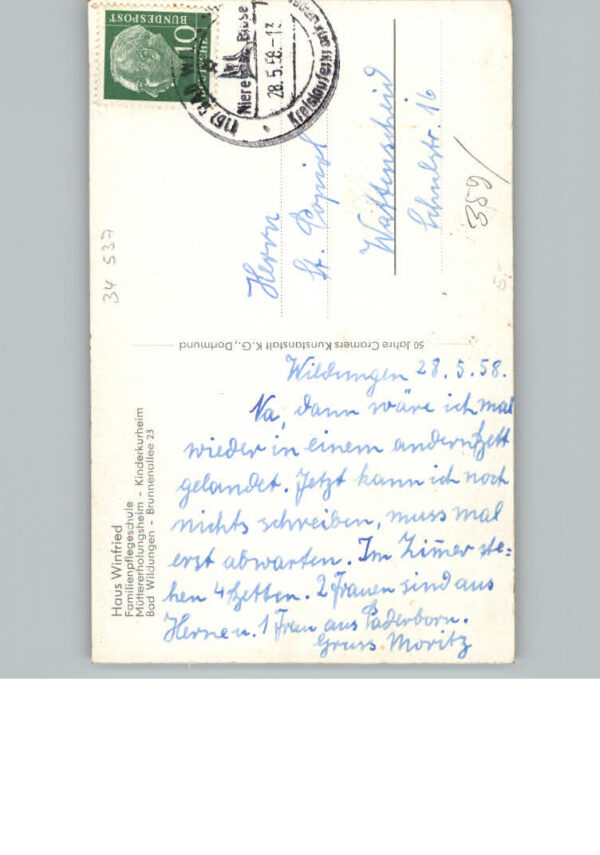 Haus Winfried
Familienpflegeschule
Müttererholungsheim - Kinderkurheim
Bad Wildungen - Brunnenallee 23
Wildungen 28.5.58.
Na, dann wäre ich mal
wieder in einem andern Bett
gelandet. Jetzt kann ich noch
nichts schreiben, muss mal
erst abwarten. Im Zimmer ste=
hen 4 Betten. 2 Frauen sind aus
Herne u. 1 Frau aus Paderborn.
Gruss Moritz
50 Jahre Cramers Kunstanstalt K.G., Dortmund
10
BUNDESPOST
(16) BAD
Niere Blase
28.5.58.-13
Kreislauf
Herrn
St.
Wattenscheid
Schulstr. 16
359/
34 537